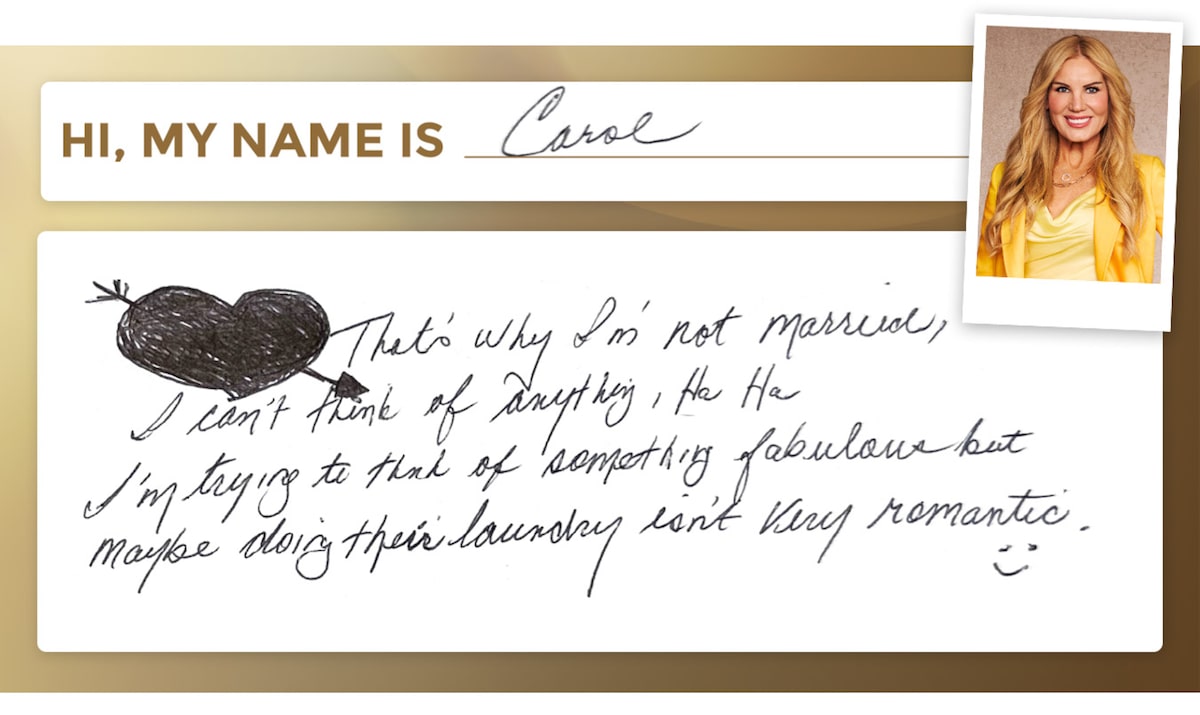 HI, MY NAME IS Carol
That's why I'm not married,
I can't think of anything, Ha Ha
I'm trying to think of something fabulous but
maybe doing their laundry isn't very romantic.